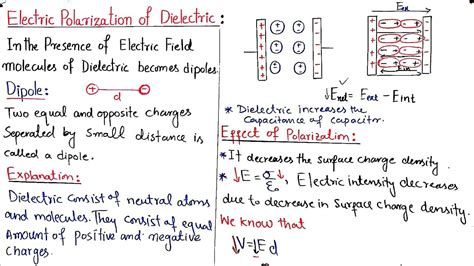 Electric Polarization of Dielectric:
In the Presence of Electric Field
molecules of Dielectric becomes dipoles.
Dipole:
+ -
d
Two equal and opposite charges
Seperated by Small distance is
called a dipole.
Explanation:
Dielectric Consist of neutral atoms
and molecules. They Consist of equal
Amount of positive and negative
charges.
Eext
Eint
↓Enet = Eext - Eint
* Dielectric increases the
Capacitance of capacitor.
Effect of Polarization:
* It decreases the Surface charge density.
* ↓E = σ↓/ε₀, Electric intensity decreases
due to decrease in Surface charge density.
We know that
↓V=↓Ed